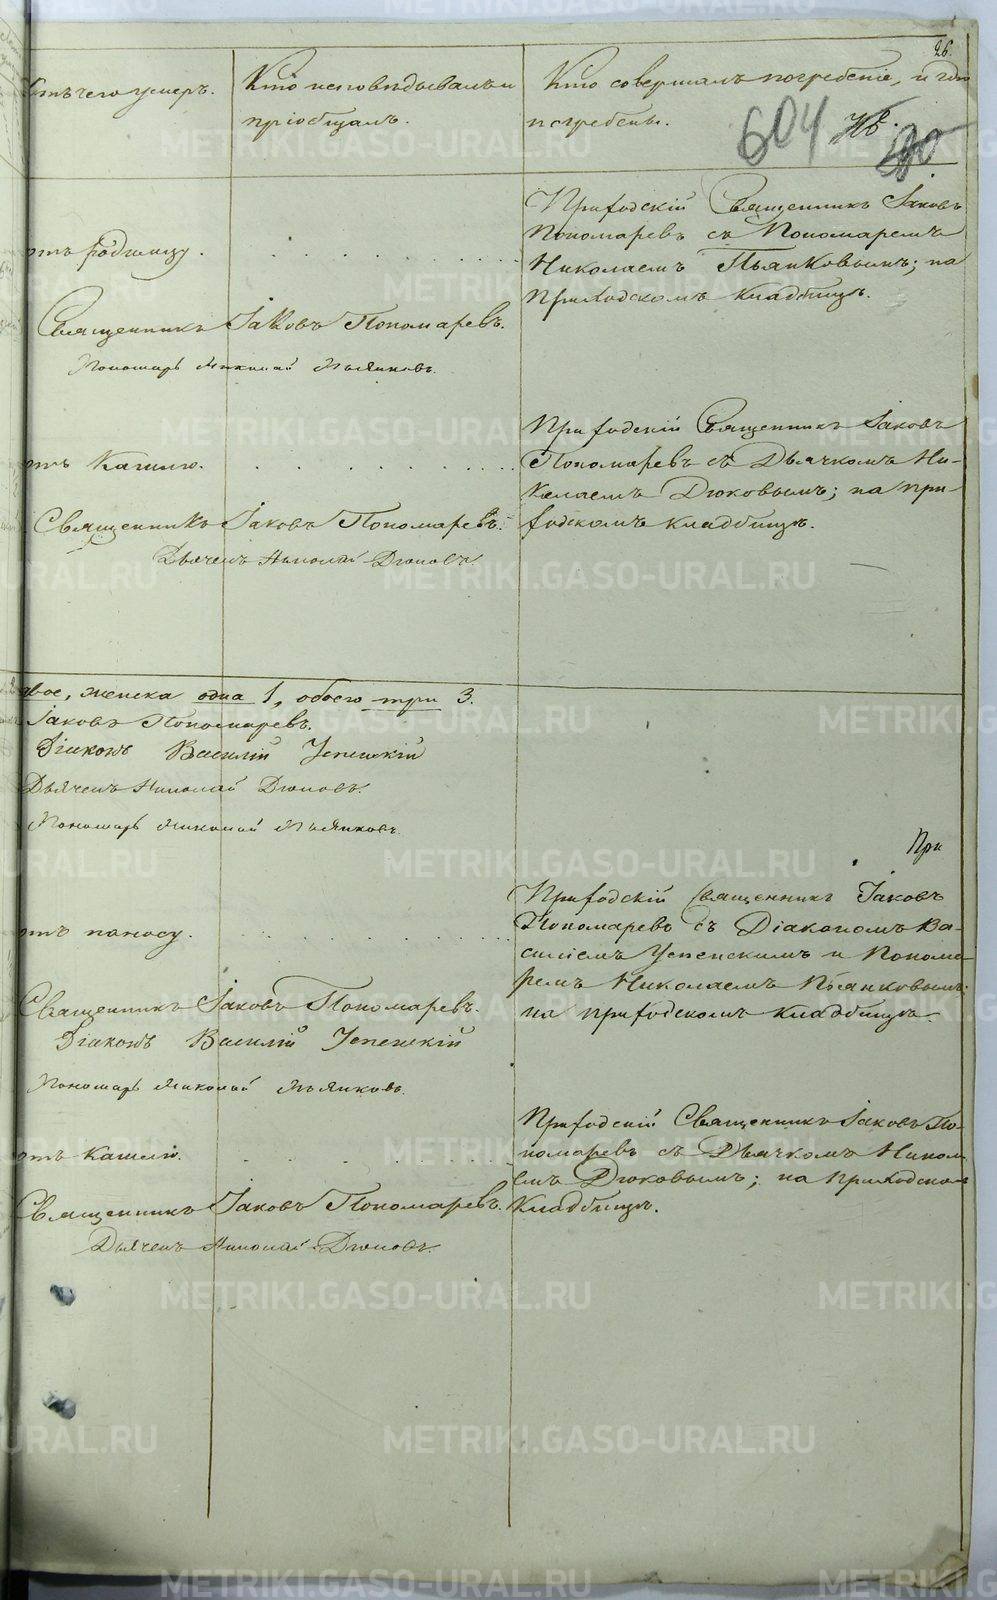 26.
Отъ чего умеръ.
Кто исповѣдывалъ и
пріобщалъ.
Кто совершалъ погребеніе, и гдѣ
погребены.
604
отъ родимцу.
Приходскій Священникъ Іаковъ
Пономаревъ съ Пономаремъ
Николаемъ Пьянковымъ; на
Приходскомъ кладбищѣ.
Священникъ Іаковъ Пономаревъ.
Пономарь Николай Пьянковъ.
отъ Кашлю.
Приходскій Священникъ Іаковъ
Пономаревъ съ Дьячкомъ Ни-
колаемъ Дюковымъ; на при-
ходскомъ кладбищѣ.
Священникъ Іаковъ Пономаревъ.
Дьячекъ Николай Дюковъ.
двое, женска одна 1, обоего три 3.
Іаковъ Пономаревъ.
Діаконъ Василій Успенскій
Дьячекъ Николай Дюковъ.
Пономарь Николай Пьянковъ.
При
отъ поносу.
Приходскій Священникъ Іаковъ
Пономаревъ съ Діакономъ Ва-
силіемъ Успенскимъ и Понома-
ремъ Николаемъ Пьянковымъ;
на приходскомъ кладбищѣ.
Священникъ Іаковъ Пономаревъ.
Діаконъ Василій Успенскій
Пономарь Николай Пьянковъ.
отъ Кашлю.
Приходскій Священникъ Іаковъ По-
номаревъ съ Дьячкомъ Никола-
емъ Дюковымъ; на Приходскомъ
Кладбищѣ.
Священникъ Іаковъ Пономаревъ.
Дьячекъ Николай Дюковъ.
METRIKI.GASO-URAL.RU